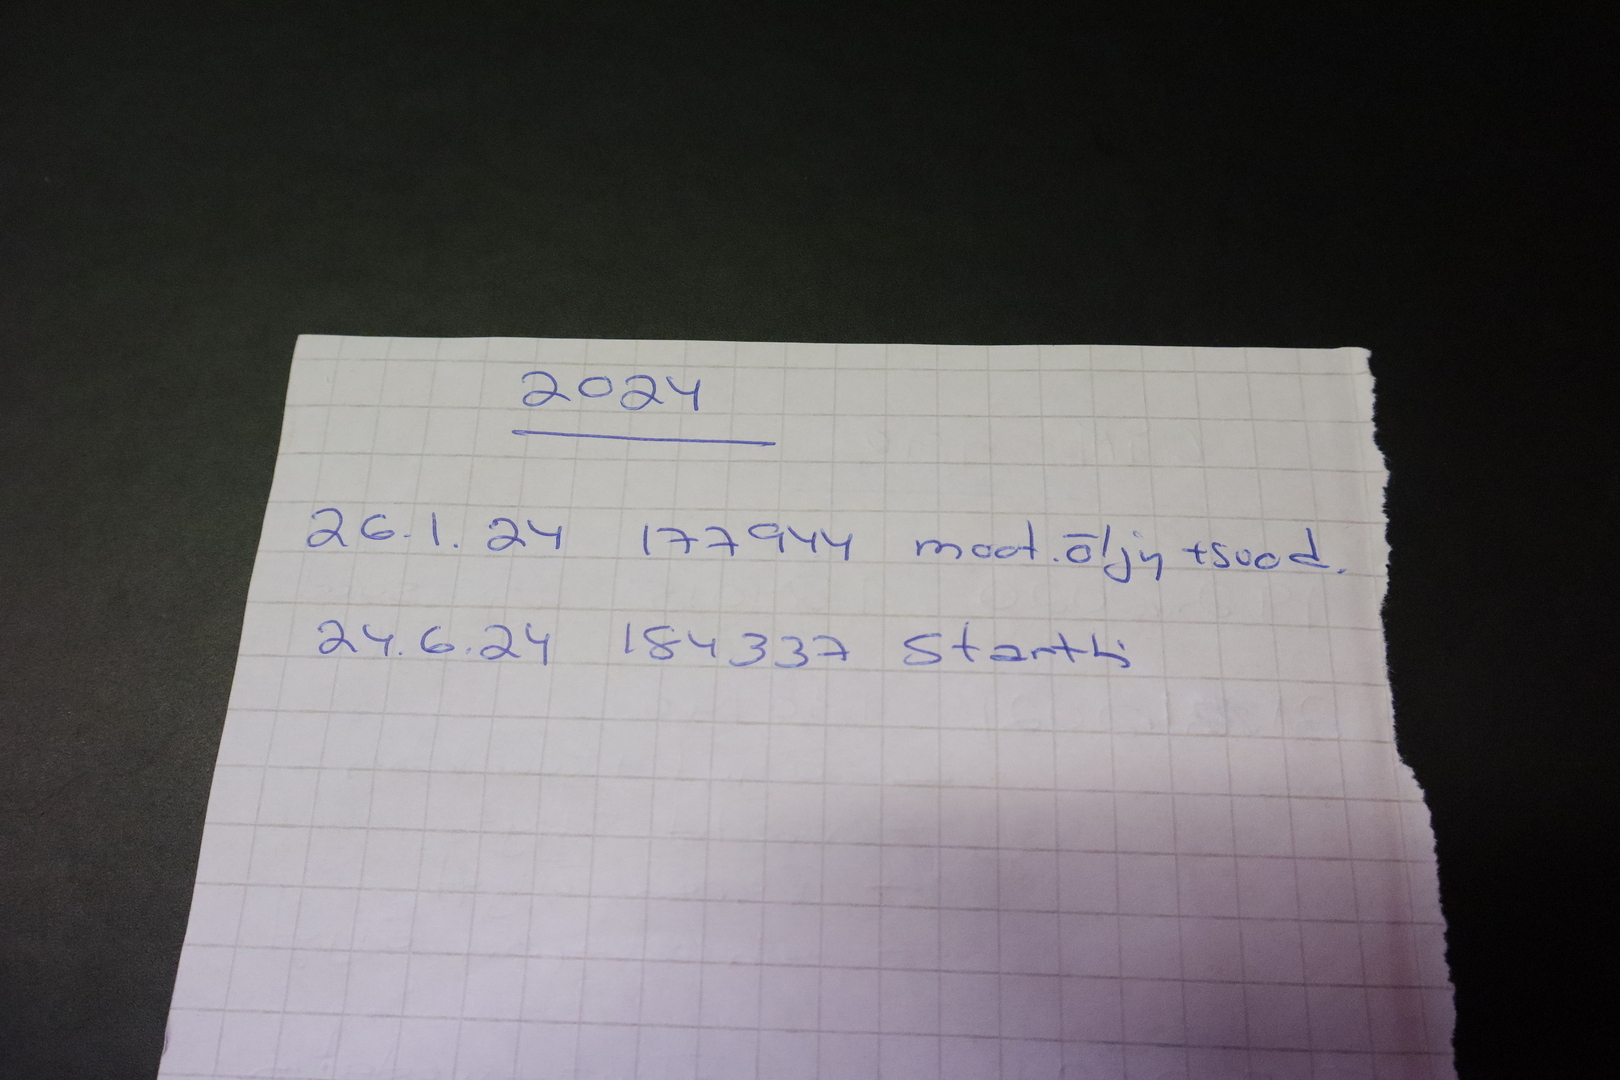 2024
26.1.24 177944 moot.öljy +suod.
24.6.24 184337 Startti